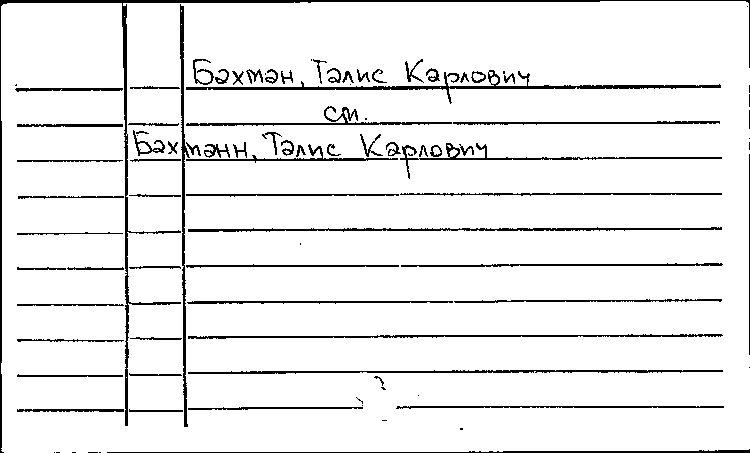 Бахман, Талис Карлович
см.
Бахманн, Талис Карлович